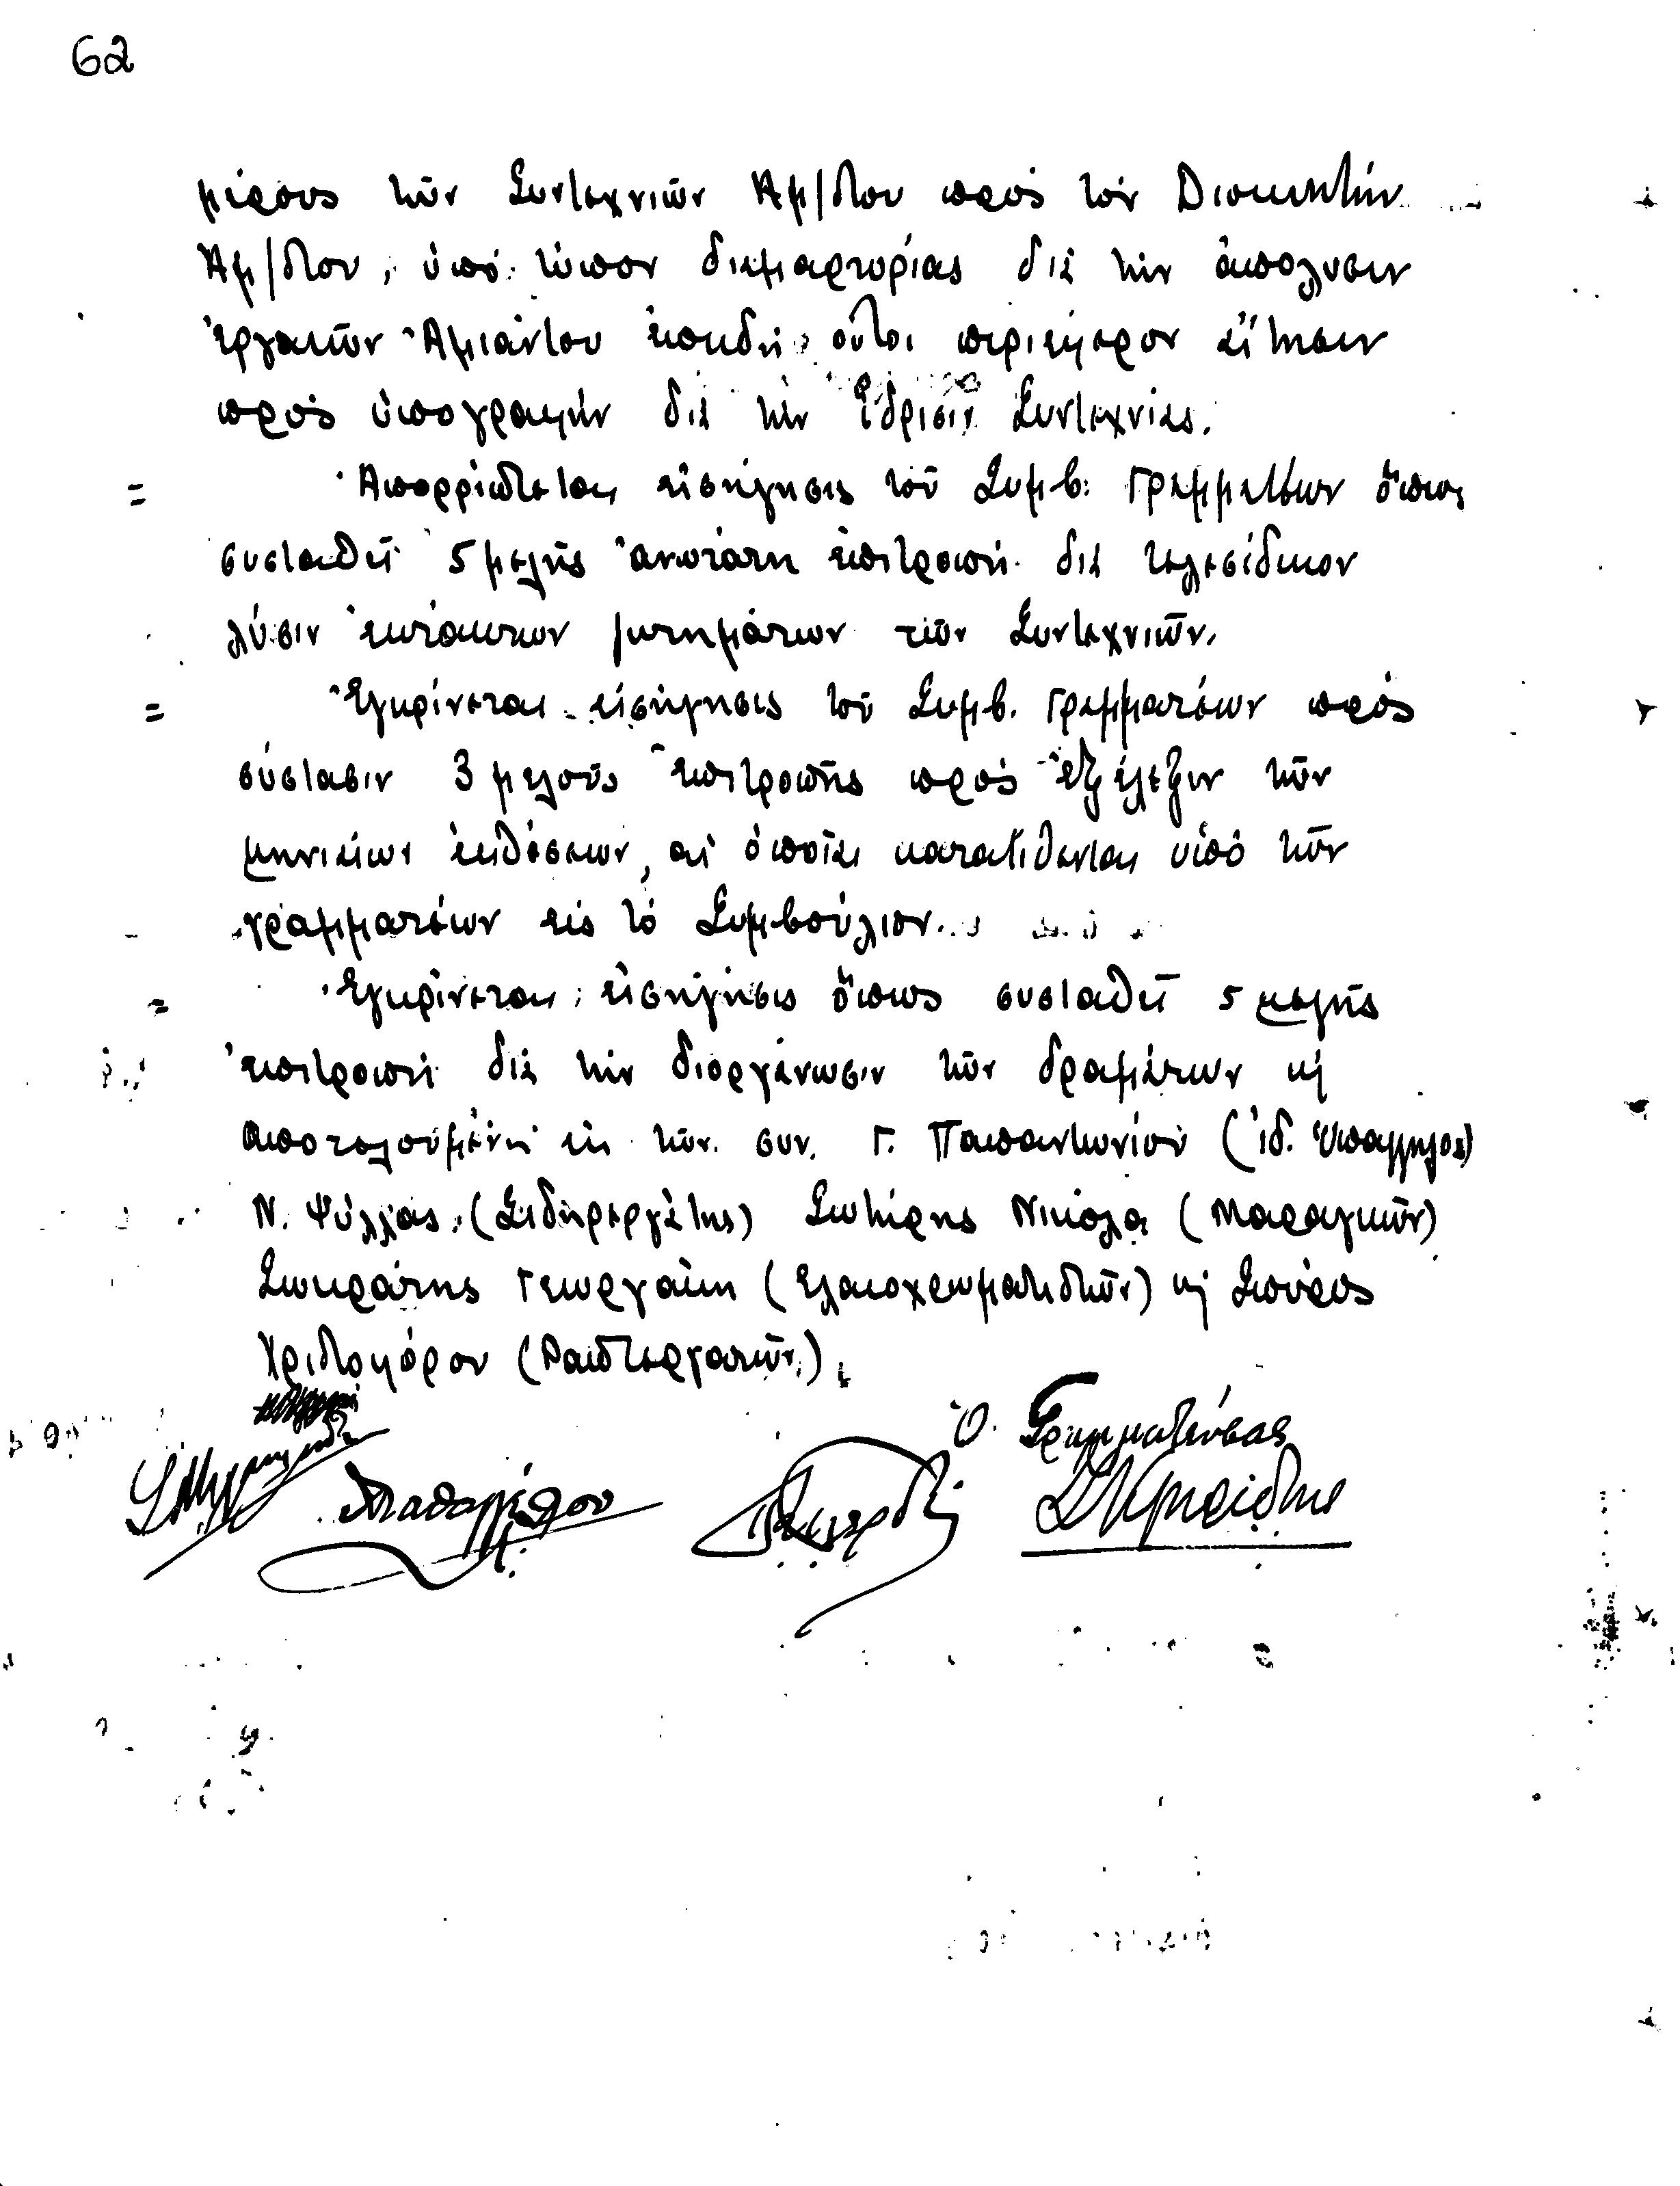 62
μέρους τῶν Συντεχνιῶν Ἀμ/στου πρός τόν Διοικητήν
Ἀμ/στου, ὑπό τύπον διαμαρτυρίας διά τήν ἀπόλυσιν
ἐργατῶν Ἀμιάντου ἐπειδή οὗτοι περιέφερον αἴτησιν
πρός ὑπογραφήν διά τήν ἵδρισιν Συντεχνίας.
= Ἀπορρίπτεται εἰσήγησις τοῦ Συμβ. Γραμματέων ὅπως
συσταθεῖ 5μελής ἀνωτάτη ἐπιτροπή διά τελεσίδικον
λύσιν ἐκτάκτων ζητημάτων τῶν Συντεχνιῶν.
= Ἐγκρίνεται εἰσήγησις τοῦ Συμβ. Γραμματέων πρός
σύστασιν 3 μελοῦς ἐπιτροπῆς πρός ἐξέλεξιν τῶν
μηνιαίων ἐκθέσεων, αἱ ὁποῖαι κατατίθενται ὑπό τῶν
γραμματέων εἰς τό Συμβούλιον.
= Ἐγκρίνεται εἰσήγησις ὅπως συσταθεῖ 5 μελής
ἐπιτροπή διά τήν διοργάνωσιν τῶν δραμάτων κ᾽
ἀποτελουμένη ἐκ τῶν συν. Γ. Παπαντωνίου (ἰδ. Ὑπάλληλος)
Ν. Ψύλλας, (Σιδηρεργάτης) Σωτήρης Νικόλα (Μαραγκῶν)
Σωκράτης Γεωργάκη (Ἐλαιοχρωματιστῶν) κ᾽ Σπύρος
Χριστοφόρου (Ραπτεργατῶν).
Ὁ Γραμματεύσας
Παπαγγέλου